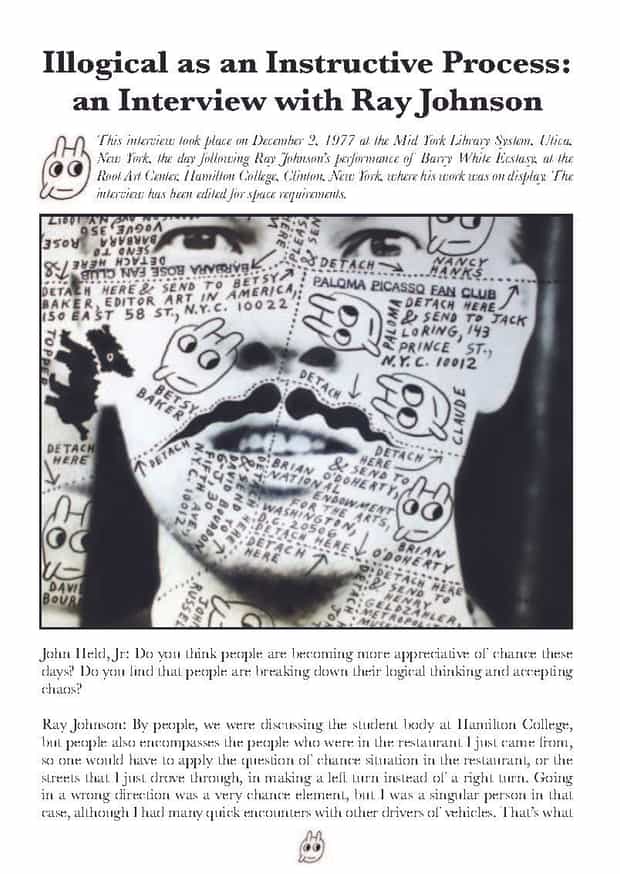 Illogical as an Instructive Process:
an Interview with Ray Johnson
This interview took place on December 2, 1977 at the Mid York Library System, Utica,
New York, the day following Ray Johnson's performance of Barry White Ecstasy, at the
Root Art Center, Hamilton College, Clinton, New York, where his work was on display. The
interview has been edited for space requirements.
VOGUE, 350
BARBARA ROSE
SEND TO
DETACH HERE &
BARBARA ROSE FAN CLUB
HERE
& SEN
DETACH
NANCY
HANKS
DETACH HERE & SEND TO BETSY
BAKER, EDITOR ART IN AMERICA,
150 EAST 58 ST., N.Y.C. 10022
PALOMA PICASSO FAN CLUB
DETACH HERE
& SEND TO JACK
LORING, 143
PRINCE ST.,
N.Y.C. 10012
PALOMA
TOPPER
BETSY
BAKER
DETACH
CLAUDE
DETACH
HERE
DETACH
DETACH
HERE
& SEND TO
BRIAN O'DOHERTY,
NATIONAL
ENDOWMENT
FOR THE ARTS,
WASHINGTON,
D.C. 20506
DETACH HERE
DETACH
HERE
DAVID BOURDON
FIFTH AVE.
N.Y.C. 10011
BRIAN
O'DOHERTY
DAVI
BOUR
JOHN
RUSSEL
DETACH HERE
& SEND TO
HENRY
GELDZAHLER,
METROPOLI
MUSEU
John Held, Jr: Do you think people are becoming more appreciative of chance these
days? Do you find that people are breaking down their logical thinking and accepting
chaos?
Ray Johnson: By people, we were discussing the student body at Hamilton College,
but people also encompasses the people who were in the restaurant I just came from,
so one would have to apply the question of chance situation in the restaurant, or the
streets that I just drove through, in making a left turn instead of a right turn. Going
in a wrong direction was a very chance element, but I was a singular person in that
case, although I had many quick encounters with other drivers of vehicles. That's what